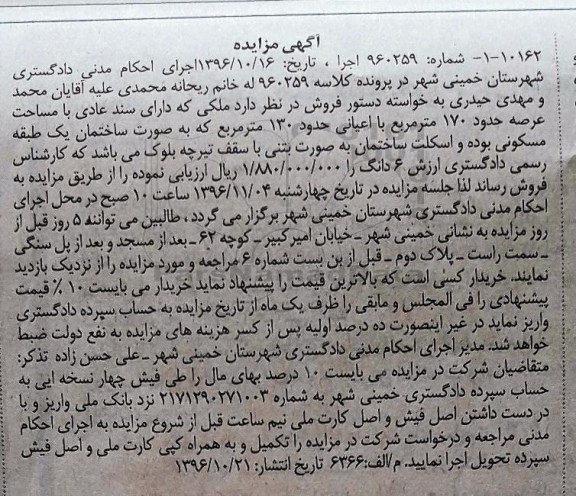 آگهی مزایده
۱-۱۰۱۶۲- شماره: ۹۶۰۲۵۹ اجرا ، تاریخ: ۱۳۹۶/۱۰/۱۶اجرای احکام مدنی دادگستری
شهرستان خمینی شهر در پرونده کلاسه ۹۶۰۲۵۹ له خانم ریحانه محمدی علیه آقایان محمد
و مهدی حیدری به خواسته دستور فروش در نظر دارد ملکی که دارای سند عادی با مساحت
عرصه حدود ۱۷۰ مترمربع با اعیانی حدود ۱۳۰ مترمربع که به صورت ساختمان یک طبقه
مسکونی بوده و اسکلت ساختمان به صورت بتنی با سقف تیرچه بلوک می باشد که کارشناس
رسمی دادگستری ارزش ۶ دانگ را ۱/۸۸۰/۰۰۰/۰۰۰ ریال ارزیابی نموده را از طریق مزایده به
فروش رساند لذا جلسه مزایده در تاریخ چهارشنبه ۱۳۹۶/۱۱/۰۴ ساعت ۱۰ صبح در محل اجرای
احکام مدنی دادگستری شهرستان خمینی شهر برگزار می گردد ، طالبین می تواننه ۵ روز قبل از
روز مزایده به نشانی خمینی شهر ـ خیابان امیرکبیر ـ کوچه ۶۲ ـ بعد از مسجد و بعد از پل سنگی
ـ سمت راست ـ پلاک دوم ـ قبل از بن بست شماره ۶ مراجعه و مورد مزایده را از نزدیک بازدید
نمایند. خریدار کسی است که بالاترین قیمت را پیشنهاد نماید خریدار می بایست ۱۰ ٪ قیمت
پیشنهادی را فی المجلس و مابقی را ظرف یک ماه از تاریخ مزایده به حساب سپرده دادگستری
واریز نماید در غیر اینصورت ده درصد اولیه پس از کسر هزینه های مزایده به نفع دولت ضبط
خواهد شد. مدیر اجرای احکام مدنی دادگستری شهرستان خمینی شهر ـ علی حسن زاده تذکر:
متقاضیان شرکت در مزایده می بایست ۱۰ درصد بهای مال را طی فیش چهار نسخه ایی به
حساب سپرده دادگستری خمینی شهر به شماره ۲۱۷۱۲۹۰۲۷۱۰۰۳ نزد بانک ملی واریز و با
در دست داشتن اصل فیش و اصل کارت ملی نیم ساعت قبل از شروع مزایده به اجرای احکام
مدنی مراجعه و درخواست شرکت در مزایده را تکمیل و به همراه کپی کارت ملی و اصل فیش
سپرده تحویل اجرا نمایید. م/الف:۶۳۶۶ تاریخ انتشار: ۱۳۹۶/۱۰/۲۱